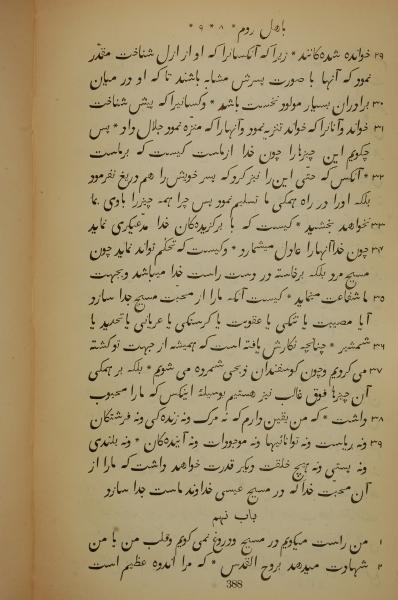 باهل روم * ۸ * ۹ *
۲۹ خوانده شده‌کانند * زیرا که آنکسانرا که او از ازل شناخت مقدّر
نمود که آنها با صورت پسرش مشابه باشند تا که او در میان
۳۰ برادران بسیار مولود نخست باشد * وکسانیرا که پیش شناخت
۳۱ خواند وآنانرا که خواند تنزیه نمود وآنهارا که منزّه نمود جلال داد * پس
چکویم این چیزها را چون خدا ازماست کیست که برماست
۳۲ * آنکس که حتّی این را نیز کرد که پسر خویش را هم دریغ نفرمود
بلکه اورا در راه همکی ما تسلیم نمود پس چرا همه چیزرا باوی بما
۳۳ نخواهد بخشید * کیست که با برکزیده‌کان خدا مدّعیکری نماید
۳۴ چون خدا آنهارا عادل میشمارد * وکیست که تحکّم تواند نماید چون
مسیح مرد بلکه برخاسته در دست راست خدا میباشد وبجهت
۳۵ ما شفاعت مینماید * کیست آنکه مارا از محبّت مسیح جدا سازد
آیا مصیبت یا تنکی یا عقوبت یا کرسنکی یا عریانی یا تحدید یا
۳۶ شمشیر * چنانچه نکارش یافته است که همیشه از جهت تو کشته
۳۷ می کردیم وچون کوسفندان ذبحی شمرده می شویم * بلکه بر همکی
آن چیزها فوق غالب نیز هستیم بوسیلهٔ اینکس که مارا محبوب
۳۸ داشت * که من یقین دارم که نه مرک ونه زنده‌کی ونه فرشتکان
۳۹ ونه ریاست ونه توانائیها ونه موجودات ونه آینده‌کان * ونه بلندی
ونه پستی ونه هیچ خلقت دیکر قدرت خواهد داشت که مارا از
آن محبّت خدا که در مسیح عیسی خداوند ماست جدا سازد
باب نهم
۱ من راست میکویم در مسیح ودروغ نمی کویم وقلب من با من
۲ شهادت میدهد بروح القدس * که مرا اندوه عظیم است
388